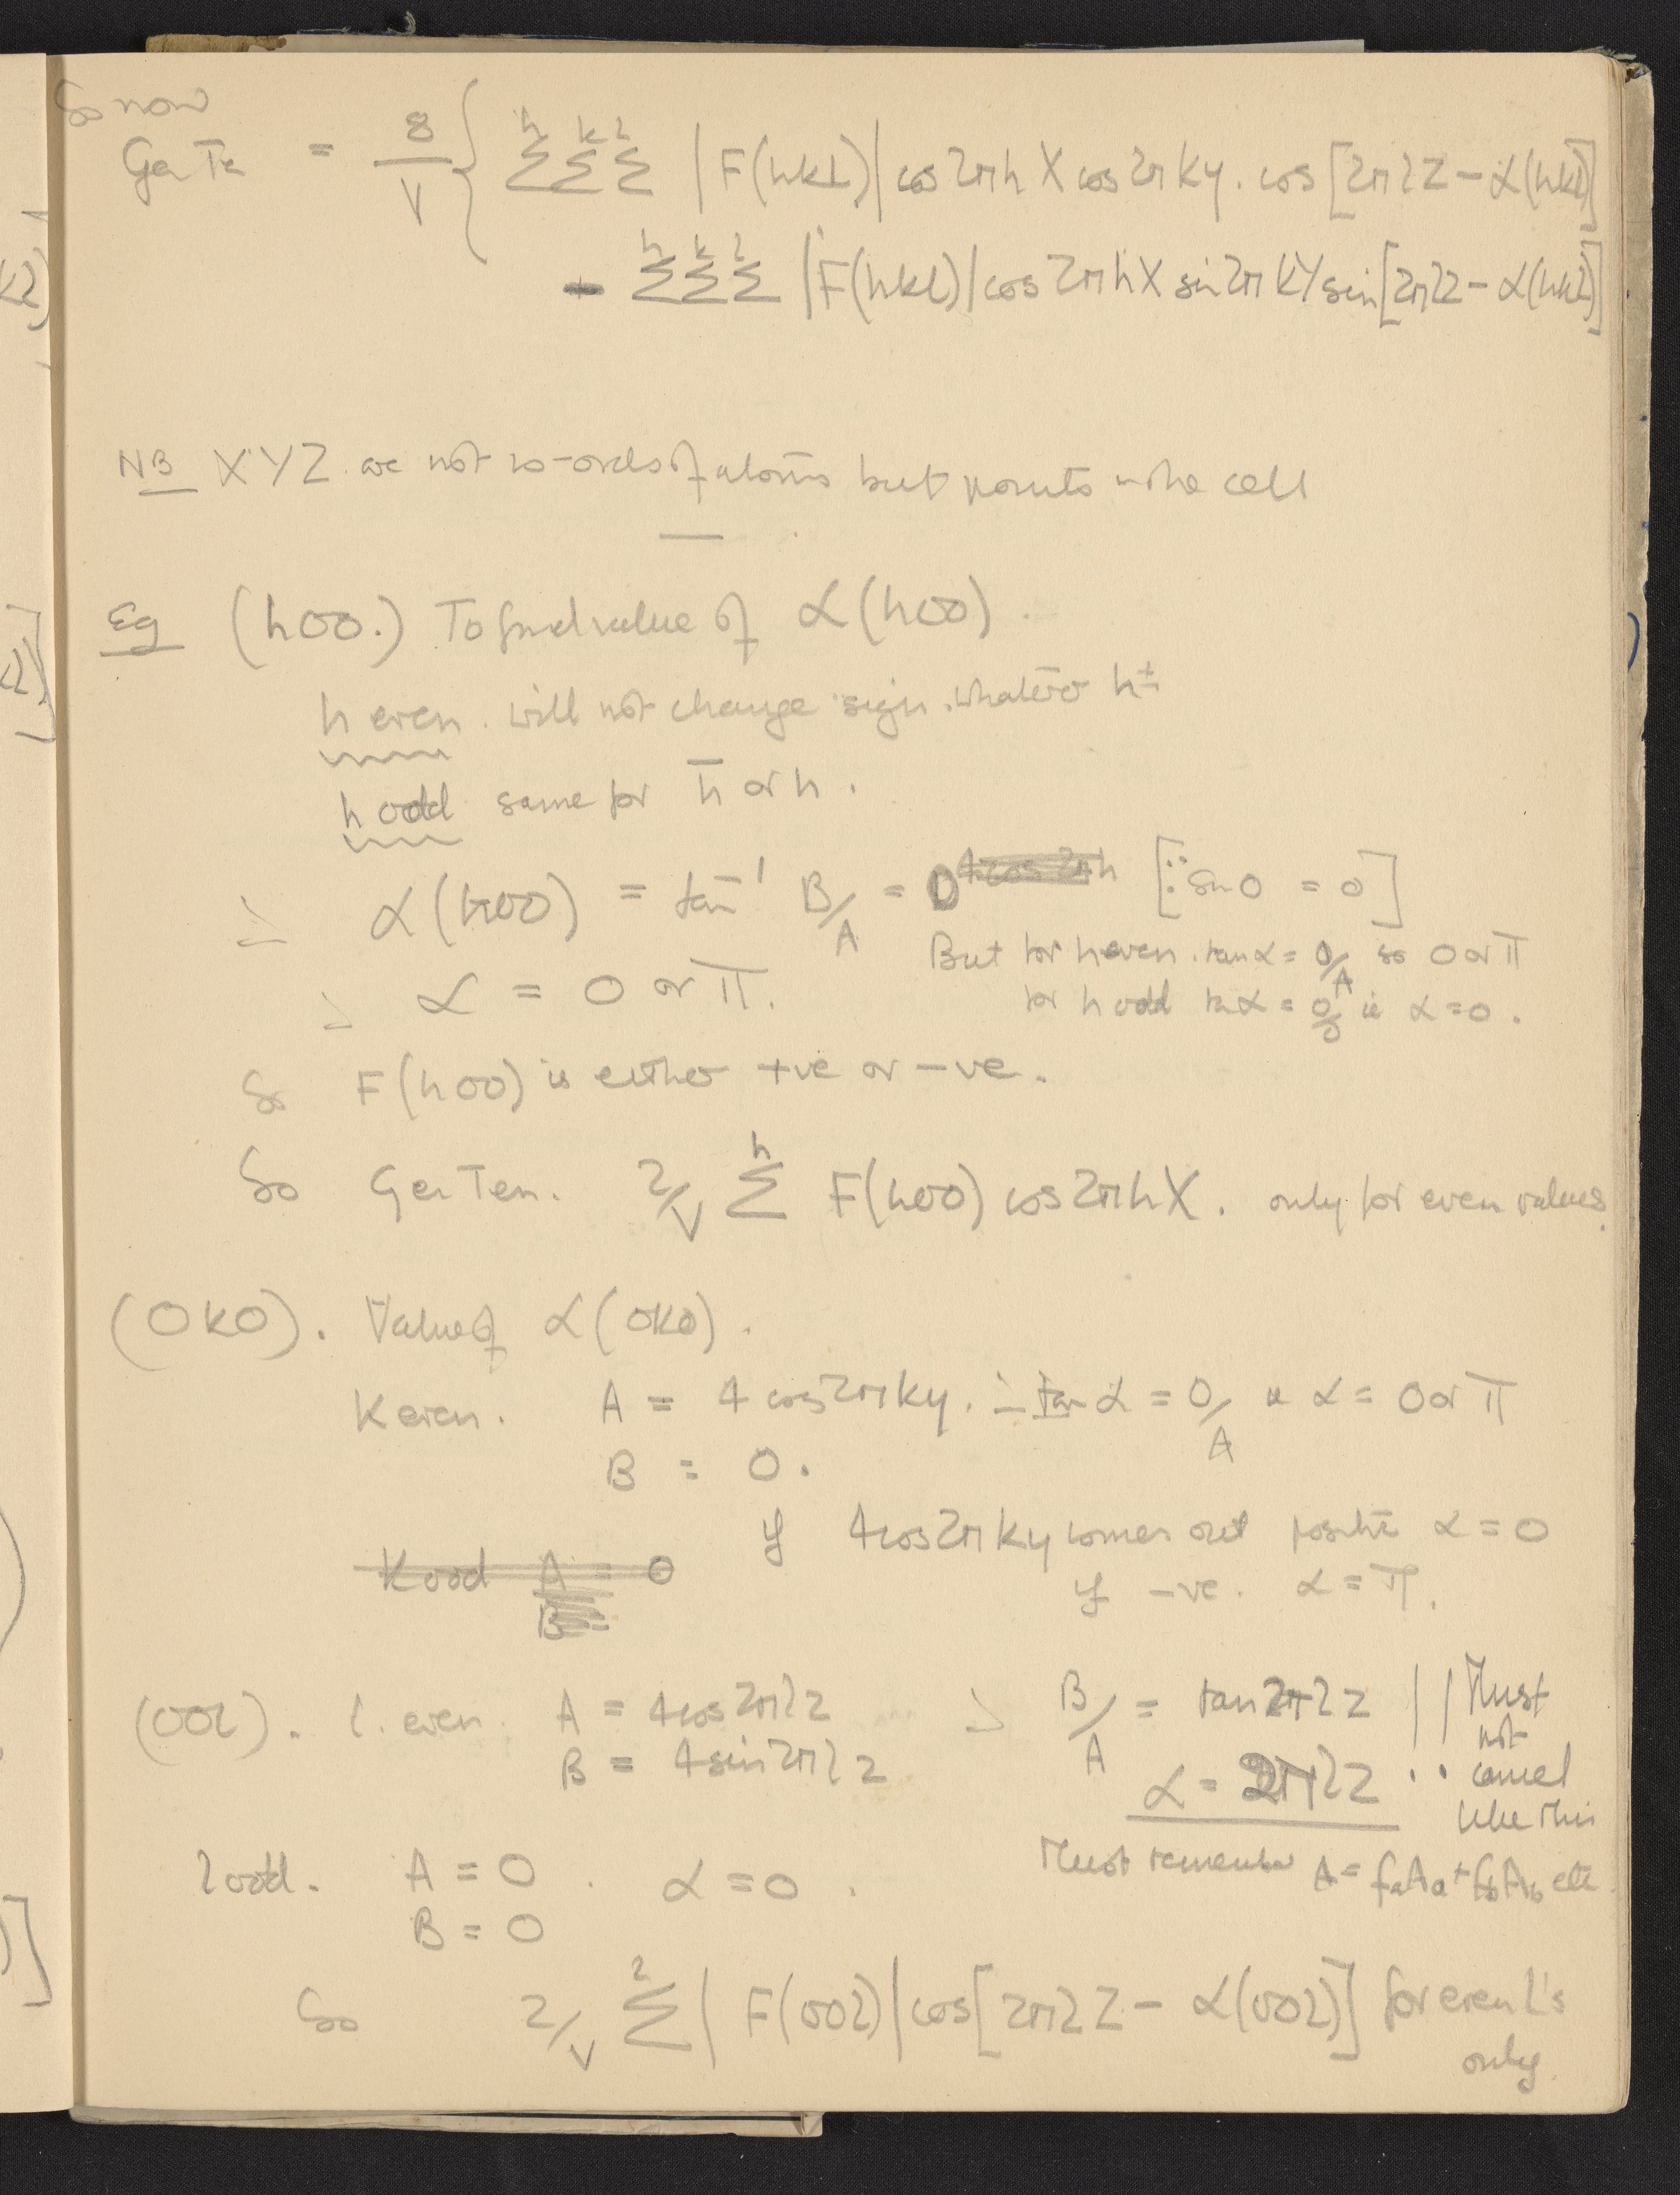 So now
Gen Te = 8/V { Σ^h Σ^k Σ^l |F(hkl)| cos 2πh X cos 2π ky . cos [2πlZ – α(hkl)]
– Σ^h Σ^k Σ^l |F(hkl)| cos 2πhX sin 2π kY sin [2πlZ – α(hkl)]
NB XYZ are not co-ords of atoms but points in the cell
Eg (h00.) To find value of α(h00).
h even. will not change sign. whatever h±
h odd same for h̄ or h.
∴ α(h00) = tan⁻¹ B/A = 0 4cos2πh [∵ sin 0 = 0]
But for h even. tan α = 0/A so 0 or π
∴ α = 0 or π.
for h odd tan α = 0/0 ie α = 0.
So F(h00) is either +ve or –ve.
So Gen Term. 2/V Σ^h F(h00) cos 2πhX. only for even values.
(0k0). Value of α(0k0).
K even. A = 4 cos 2πky. ∴ tan α = 0/A ie α = 0 or π
B = 0.
if 4cos2πky comes out positive α = 0
K odd A = 0
if –ve. α = π.
B =
(00l). l. even. A = 4cos2πlz ∴ B/A = tan 2πlz || Must not cancel like this
B = 4sin2πlz
α = 2πlz
Must remember A = faAa + fbAb etc.
l odd. A = 0. α = 0.
B = 0
So 2/V Σ^l |F(00l)| cos [2πlZ – α(00l)] for even l's
only.